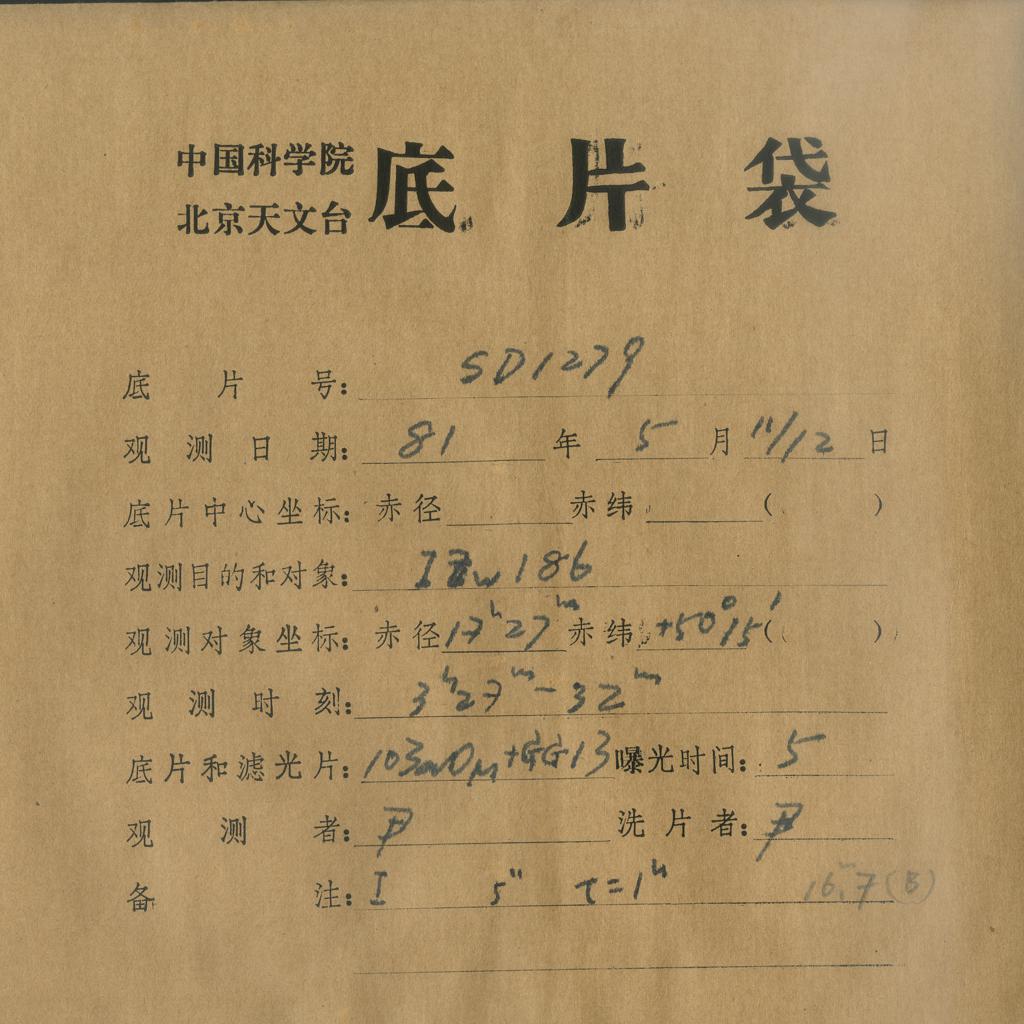 中国科学院
北京天文台
底片袋
底片号: SD1279
观测日期: 81 年 5 月 11/12 日
底片中心坐标: 赤径 赤纬 ( )
观测目的和对象: I Zw 186
观测对象坐标: 赤径 17h27m 赤纬 +50°15′ ( )
观测时刻: 3h27m-32m
底片和滤光片: 103aO +GG13 曝光时间: 5
观测者: 尹 洗片者: 尹
备注: I 5" t=1h 16.7(B)